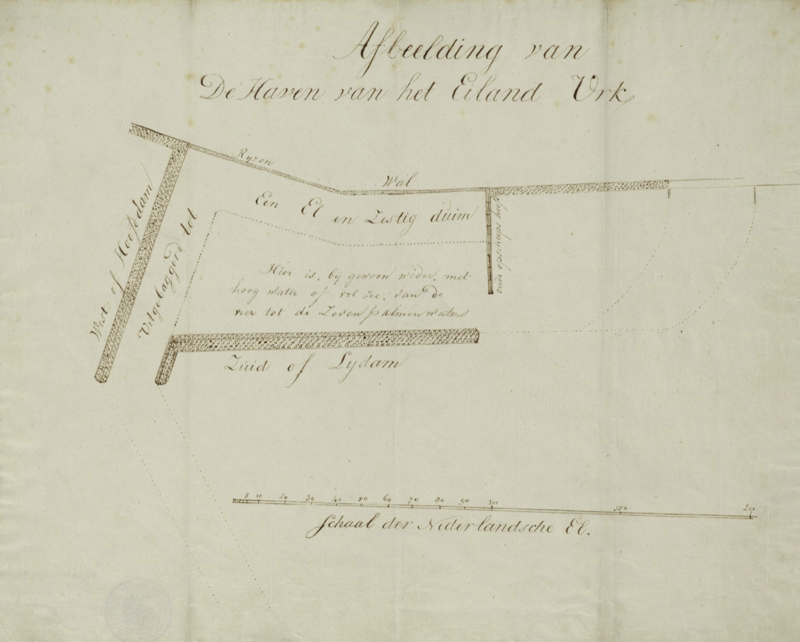 Afbeelding van
De Haven van het Eiland Urk
Ryzen Wal
West of Hoofddam
Uitgelaggerd tot
Een El en Zestig duim
Hier is, bij gewoon weder, met
hoog water of vol zee, van de
vier tot de Zeven palmen waters
Zuid of Lydam
5 10 20 30 40 50 60 70 80 90 100 150 200
Schaal der Nederlandsche El.